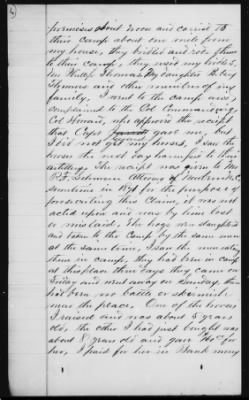 premises about noon and carried to
their camp about one mile from
my house, they bridled and rode them
to their camp, they used my bridles,
Wm Phillip Thomas My daughter
Thomas and other members of my
family, I went to the camp and
complained to the Col Commanding,
Col Howard, who approved the receipt
that Capt gave me, but
I did not get my horses, I saw the
horses the next day harnessed to their
artillery. The receipt was given to Mr
Attorney of
sometime in 1871 for the purpose of
prosecuting this claim, it was not
acted upon and was by him lost
or mislaid. The hogs were slaughtered
and taken to the Camp by the same men
at the same time, I saw the men eating
them in camp, they had been in camp
at this place three days they came on
Friday and went away on Sunday. There
had been no battle or skirmish
near the place. One of the horses
I raised and was about 5 years
old, the other I had just bought was
about 8 years old and gave for
her, I paid for her in Bank money